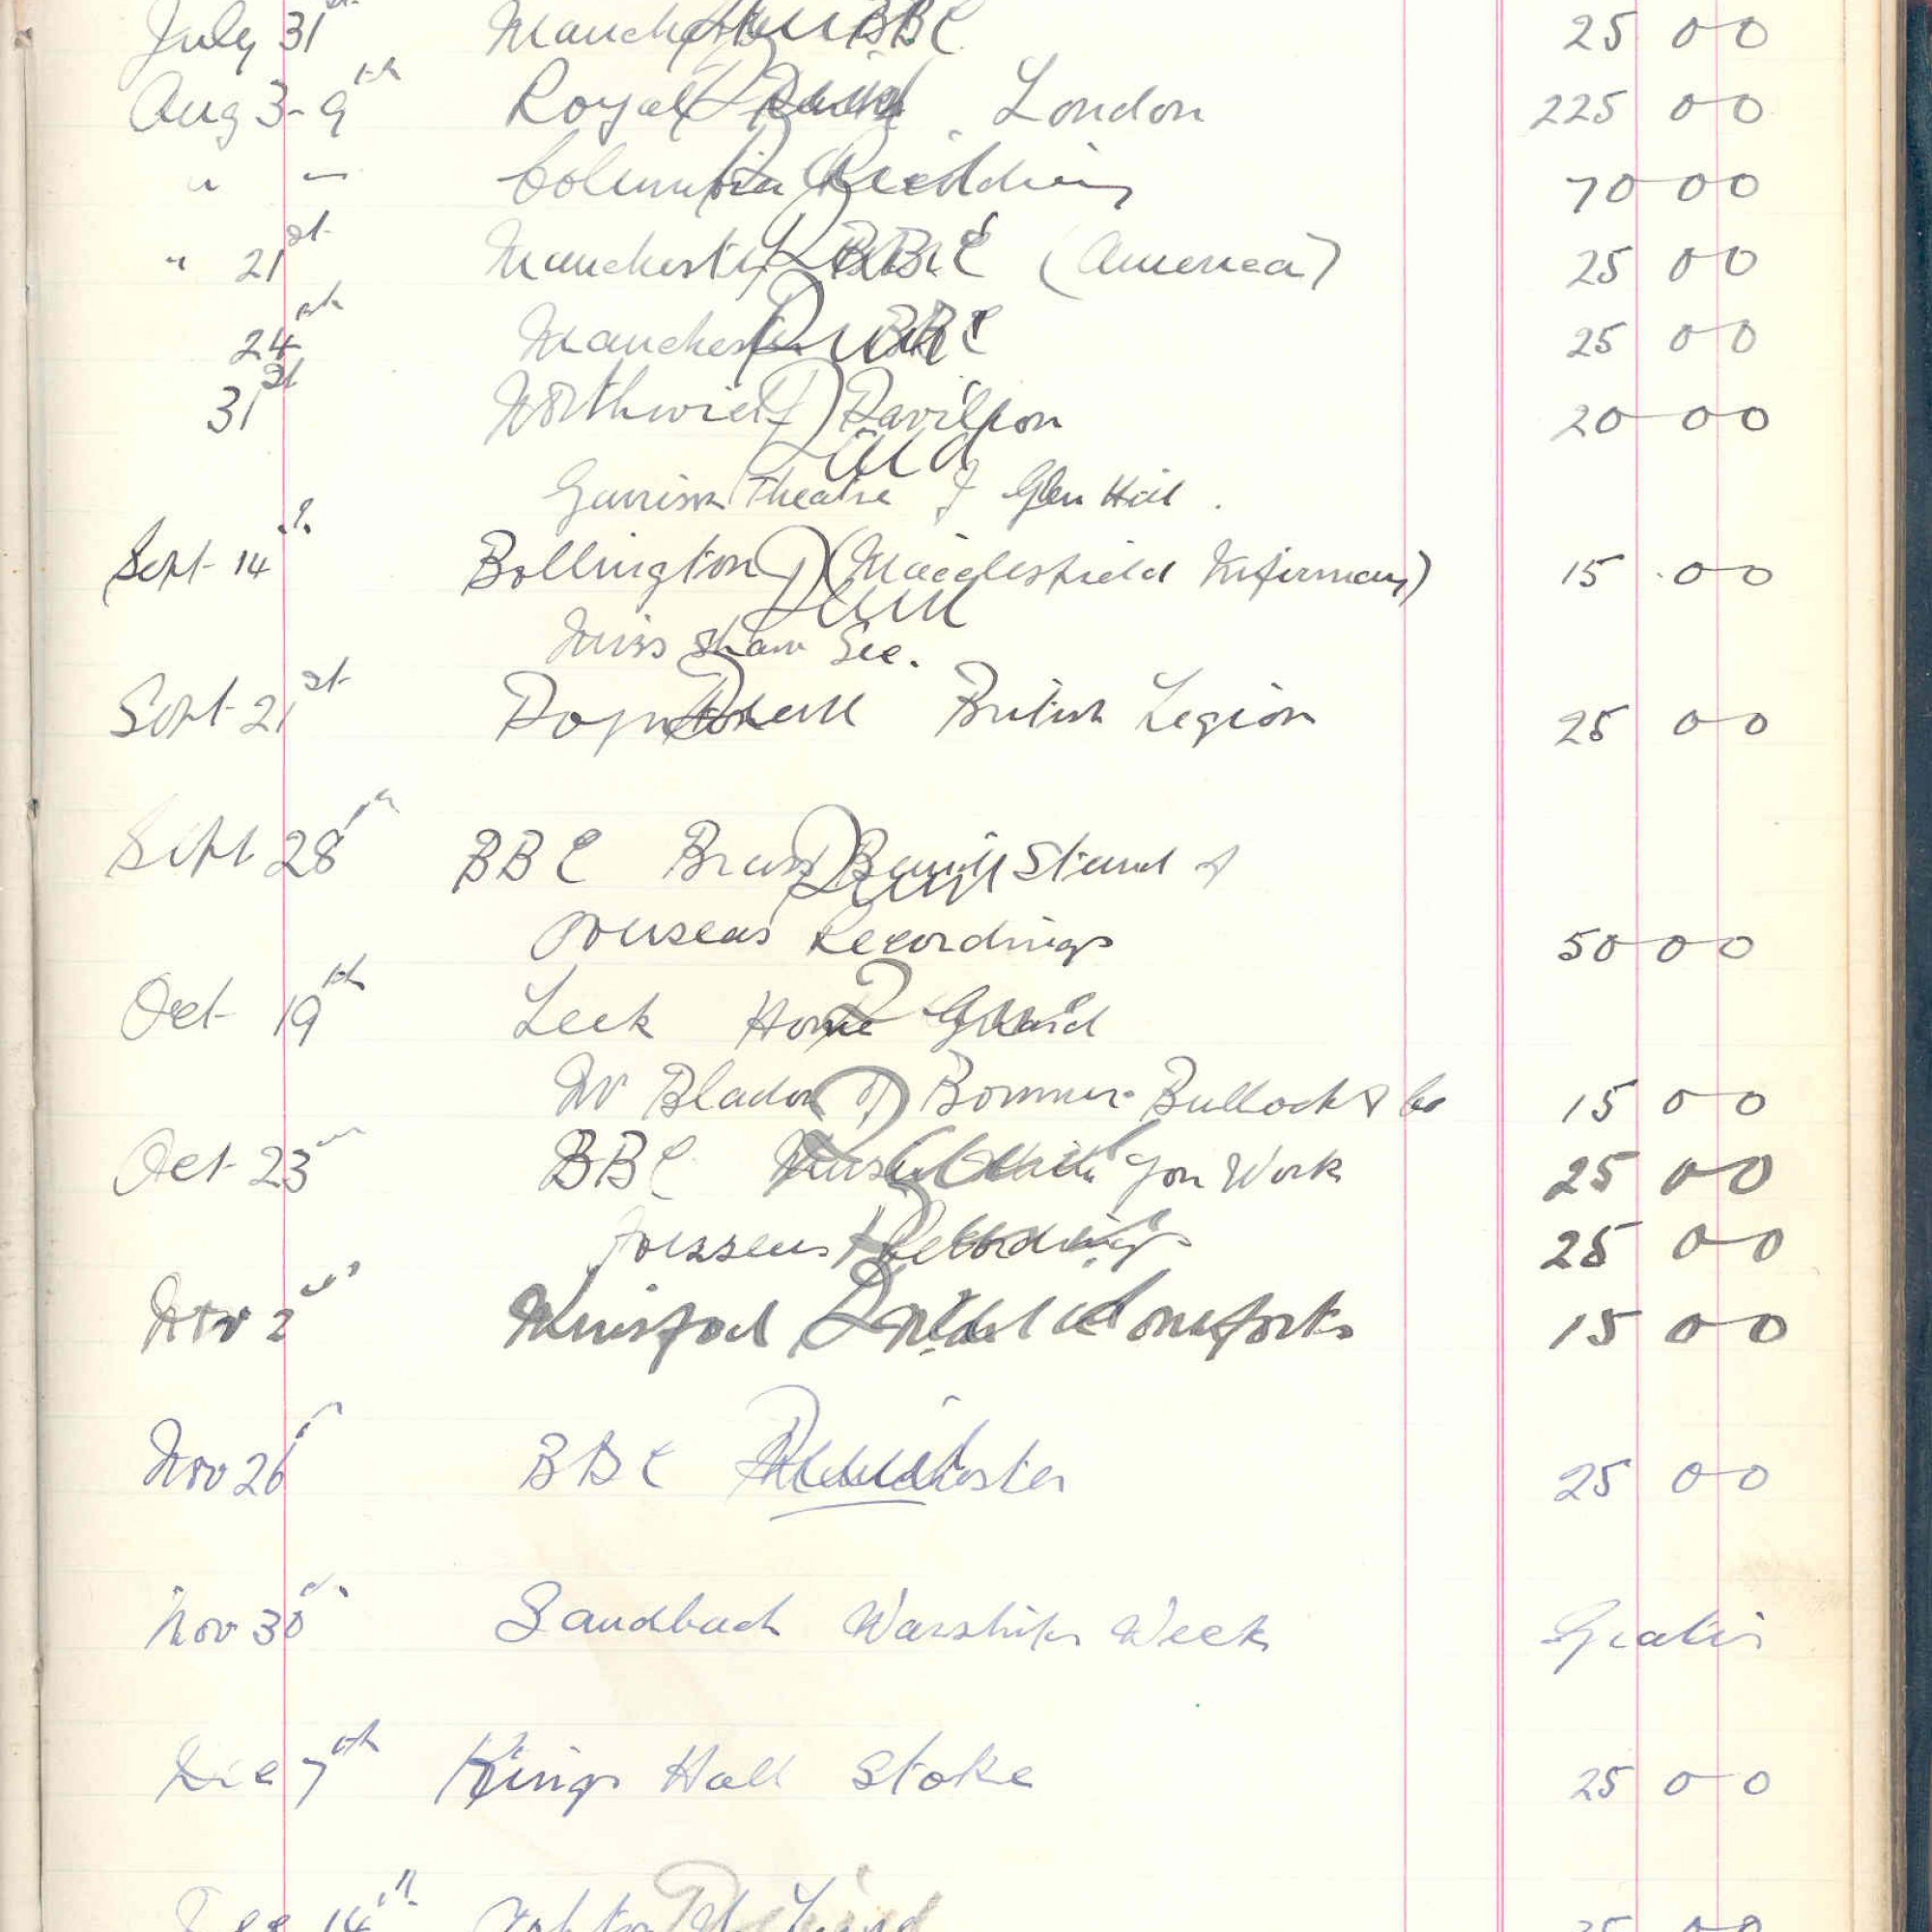 July 31st Manchester BBC 25 0 0
Aug 3-9th Royal Parks London 225 0 0
" — Columbia Recording 70 0 0
" 21st Manchester BBC (America) 25 0 0
24th Manchester BBC 25 0 0
31st Northwich Pavilion 20 0 0
Paid
Garrison Theatre Glen Hill.
Sept 14th Bollington (Macclesfield Infirmary) 15 0 0
Paid
Miss Shaw Sec.
Sept 21st Paid British Legion 25 0 0
Sept 28th BBC Brass Band Stand &
Paid
Overseas Recordings 50 0 0
Oct 19th Leek Home Guard
Mr Bladon of Bullock & Co 15 0 0
Oct 23rd BBC Music While You Work 25 0 0
Overseas Recordings 25 0 0
Nov 2nd Knutsford Comforts 15 0 0
Nov 26th BBC Manchester 25 0 0
Paid
Nov 30th Sandbach Warships Week Gratis
Dec 7th Kings Hall Stoke 25 0 0
Dec 14th Paid 0 0